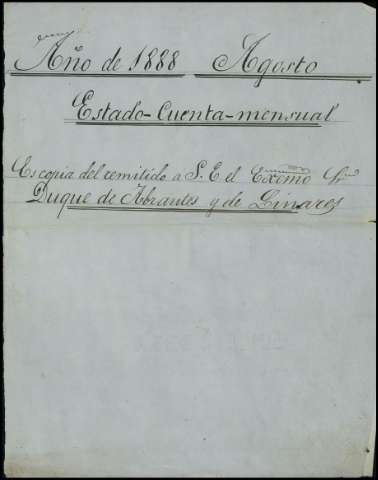 Año de 1888 Agosto
Estado-Cuenta-mensual
Es copia del remitido a S. E el Exc̃mo Sr
Duque de Abrantes y de Linares